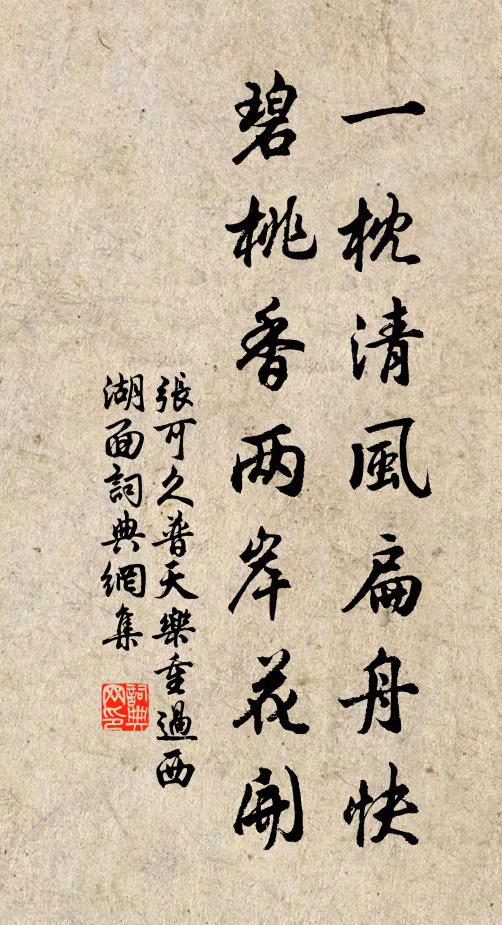 一枕清風扁舟快
碧桃香两岸花開
張可久普天樂重過西
湖面詞典網集
詞典
网印